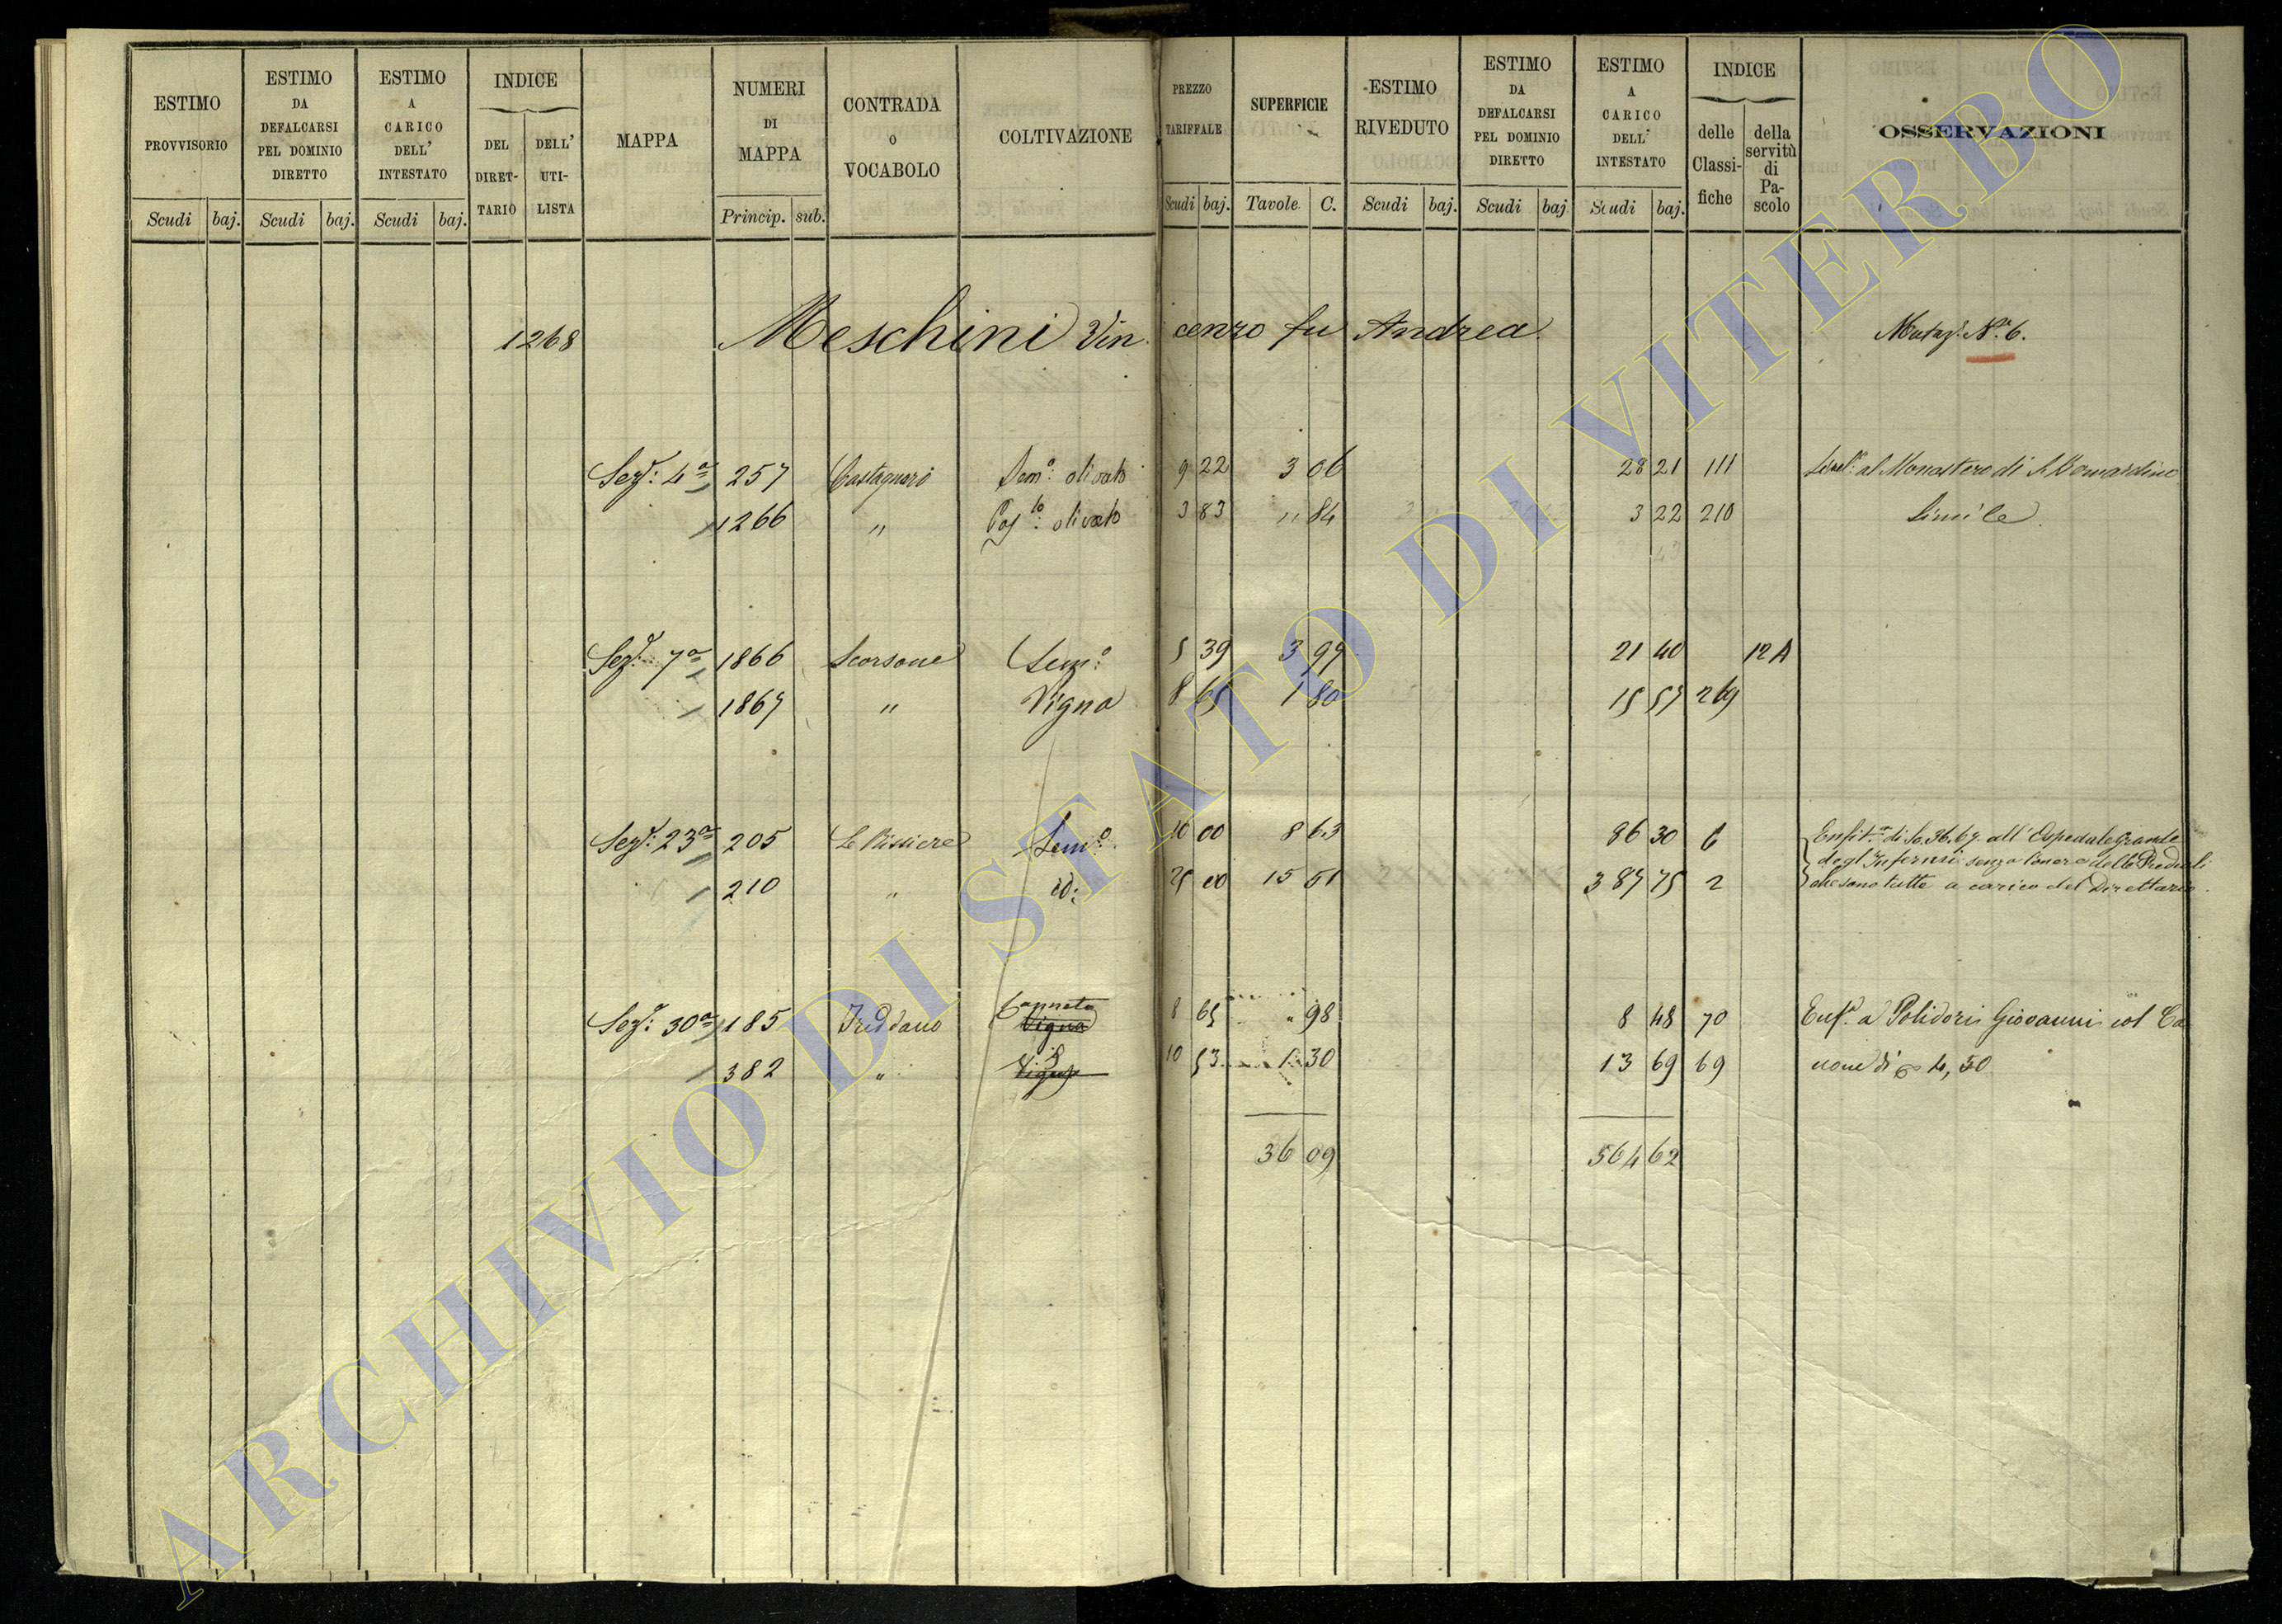 ESTIMO PROVVISORIO
ESTIMO DA DEFALCARSI PEL DOMINIO DIRETTO
ESTIMO A CARICO DELL' INTESTATO
INDICE
DEL DIRET- TARIO
DELL' UTI- LISTA
MAPPA
NUMERI DI MAPPA
CONTRADA o VOCABOLO
COLTIVAZIONE
PREZZO TARIFFALE
SUPERFICIE
ESTIMO RIVEDUTO
ESTIMO DA DEFALCARSI PEL DOMINIO DIRETTO
ESTIMO A CARICO DELL' INTESTATO
INDICE
delle Classi- fiche
della servitù di Pa- scolo
OSSERVAZIONI
Scudi baj. Scudi baj. Scudi baj. Princip. sub. Scudi baj. Tavole C. Scudi baj. Scudi baj Scudi baj.
1268 Meschini Vincenzo fu Andrea Mutaz. N.º 6.
Sez.: 4ª 257 Castagnaro Sem.º olivato 9 22 3 06 28 21 111 Livel.º al Monastero di S. Bernardino
1266 " Pas.to: olivato 3 83 " 84 3 22 210 Simile
Sez. 7ª 1866 Scorsone Sem.º 5 39 3 99 21 40 12A
1867 " Vigna 8 65 1 80 15 57 269
Sez.: 23ª 205 Le Rissiere Sem.º 10 00 8 63 86 30 6 Enfit. di Sc. 36.67 all'Ospedale Grande
degl'Infermi senza l'onere delle Prediali
210 " id: 25 00 15 51 387 75 2 che sono tutte a carico del Direttario.
Sez.: 30ª 185 Friddano Canneto Vigna 8 65 " 98 8 48 70 Enf. a Polidori Giovanni col Ca
382 " Vigna 10 53 1 30 13 69 69 none di 4,50
36 09 564 62
ARCHIVIO DI STATO DI VITERBO